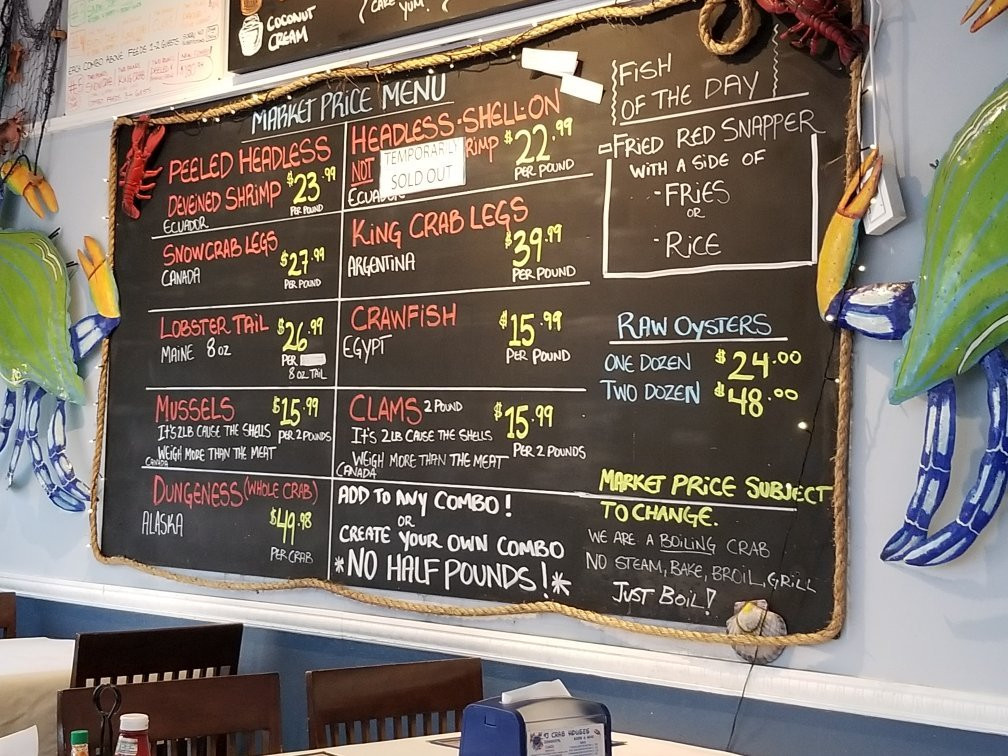 COCONUT
CREAM
CAKE OR
YUM!
EACH COMBO ABOVE FEEDS 1-2 GUESTS
MARKET PRICE MENU
PEELED HEADLESS
DEVEINED SHRIMP $23.99
PER POUND
ECUADOR
HEADLESS·SHELL-ON
NOT
TEMPORARILY
SOLD OUT
$22.99
PER POUND
SNOWCRAB LEGS
CANADA
$27.99
PER POUND
KING CRAB LEGS
ARGENTINA
$39.99
PER POUND
LOBSTER TAIL
MAINE 8 OZ
$26.99
PER
8 OZ TAIL
CRAWFISH
EGYPT
$15.99
PER POUND
MUSSELS $15.99
IT'S 2LB CAUSE THE SHELLS PER 2 POUNDS
WEIGH MORE THAN THE MEAT
CANADA
CLAMS 2 POUND $15.99
IT'S 2LB CAUSE THE SHELLS PER 2 POUNDS
WEIGH MORE THAN THE MEAT
CANADA
DUNGENESS (WHOLE CRAB)
ALASKA
$49.98
PER CRAB
ADD TO ANY COMBO!
OR
CREATE YOUR OWN COMBO
*NO HALF POUNDS!*
FISH
OF THE DAY
FRIED RED SNAPPER
WITH A SIDE OF
-FRIES
OR
-RICE
RAW OYSTERS
ONE DOZEN $24.00
TWO DOZEN $48.00
MARKET PRICE SUBJECT
TO CHANGE.
WE ARE A BOILING CRAB
NO STEAM, BAKE, BROIL, GRILL
JUST BOIL!
CRAB HOUSE